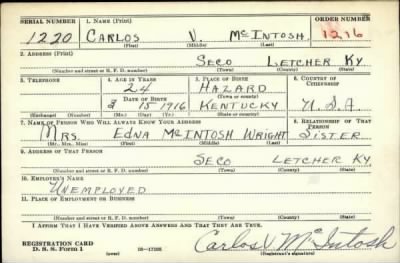 SERIAL NUMBER 1. NAME (Print) ORDER NUMBER
1220 CARLOS V. McINTOSH 1216
(First) (Middle) (Last)
2. ADDRESS (Print)
SECO LETCHER KY.
(Number and street or R. F. D. number) (Town) (County) (State)
3. TELEPHONE 4. AGE IN YEARS 5. PLACE OF BIRTH 6. COUNTRY OF CITIZENSHIP
24 HAZARD
DATE OF BIRTH (Town or county)
15 1916 KENTUCKY U.S.A
(Exchange) (Number) (Mo.) (Day) (Yr.) (State or country)
7. NAME OF PERSON WHO WILL ALWAYS KNOW YOUR ADDRESS 8. RELATIONSHIP OF THAT PERSON
MRS. EDNA McINTOSH WRIGHT SISTER
(Mr., Mrs., Miss) (First) (Middle) (Last)
9. ADDRESS OF THAT PERSON
SECO LETCHER KY
(Number and street or R. F. D. number) (Town) (County) (State)
10. EMPLOYER'S NAME
UNEMPLOYED
11. PLACE OF EMPLOYMENT OR BUSINESS
(Number and street or R. F. D. number) (Town) (County) (State)
I AFFIRM THAT I HAVE VERIFIED ABOVE ANSWERS AND THAT THEY ARE TRUE.
REGISTRATION CARD
D. S. S. Form 1 (over) 16—17105 Carlos V McIntosh
(Registrant's signature)